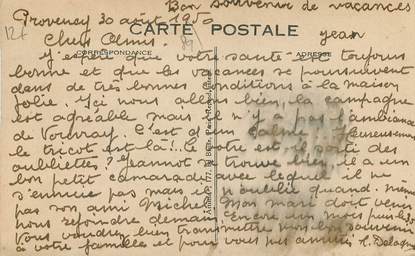 Bon souvenir de vacances
Jean
Provency 30 août
CARTE POSTALE
CORRESPONDANCE
ADRESSE
Chers Amis.
J'espère que votre santé est toujours
bonne et que les vacances se poursuivent
dans de très bonnes conditions à la maison
jolie. Ici nous allons bien, la campagne
est agréable mais il n'y a pas l'ambiance
de C'est d'un calme! Heureusement
le tricot est là!.. Le votre est-il sorti des
oubliettes? Jeannot se trouve bien, il a un
bon petit camarade avec lequel il ne
s'ennuie pas mais il n'oublie quand même
pas son ami Michel. Mon mari doit venir
nous rejoindre demain. Encore un mois puis
Vous voudrez bien transmettre mon bon souvenir
à votre famille et pour vous mes amitiés